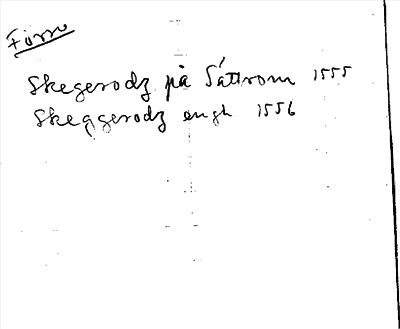 Förro
Skegerodz på Såttrom 1555
Skeggerodz engh 1556